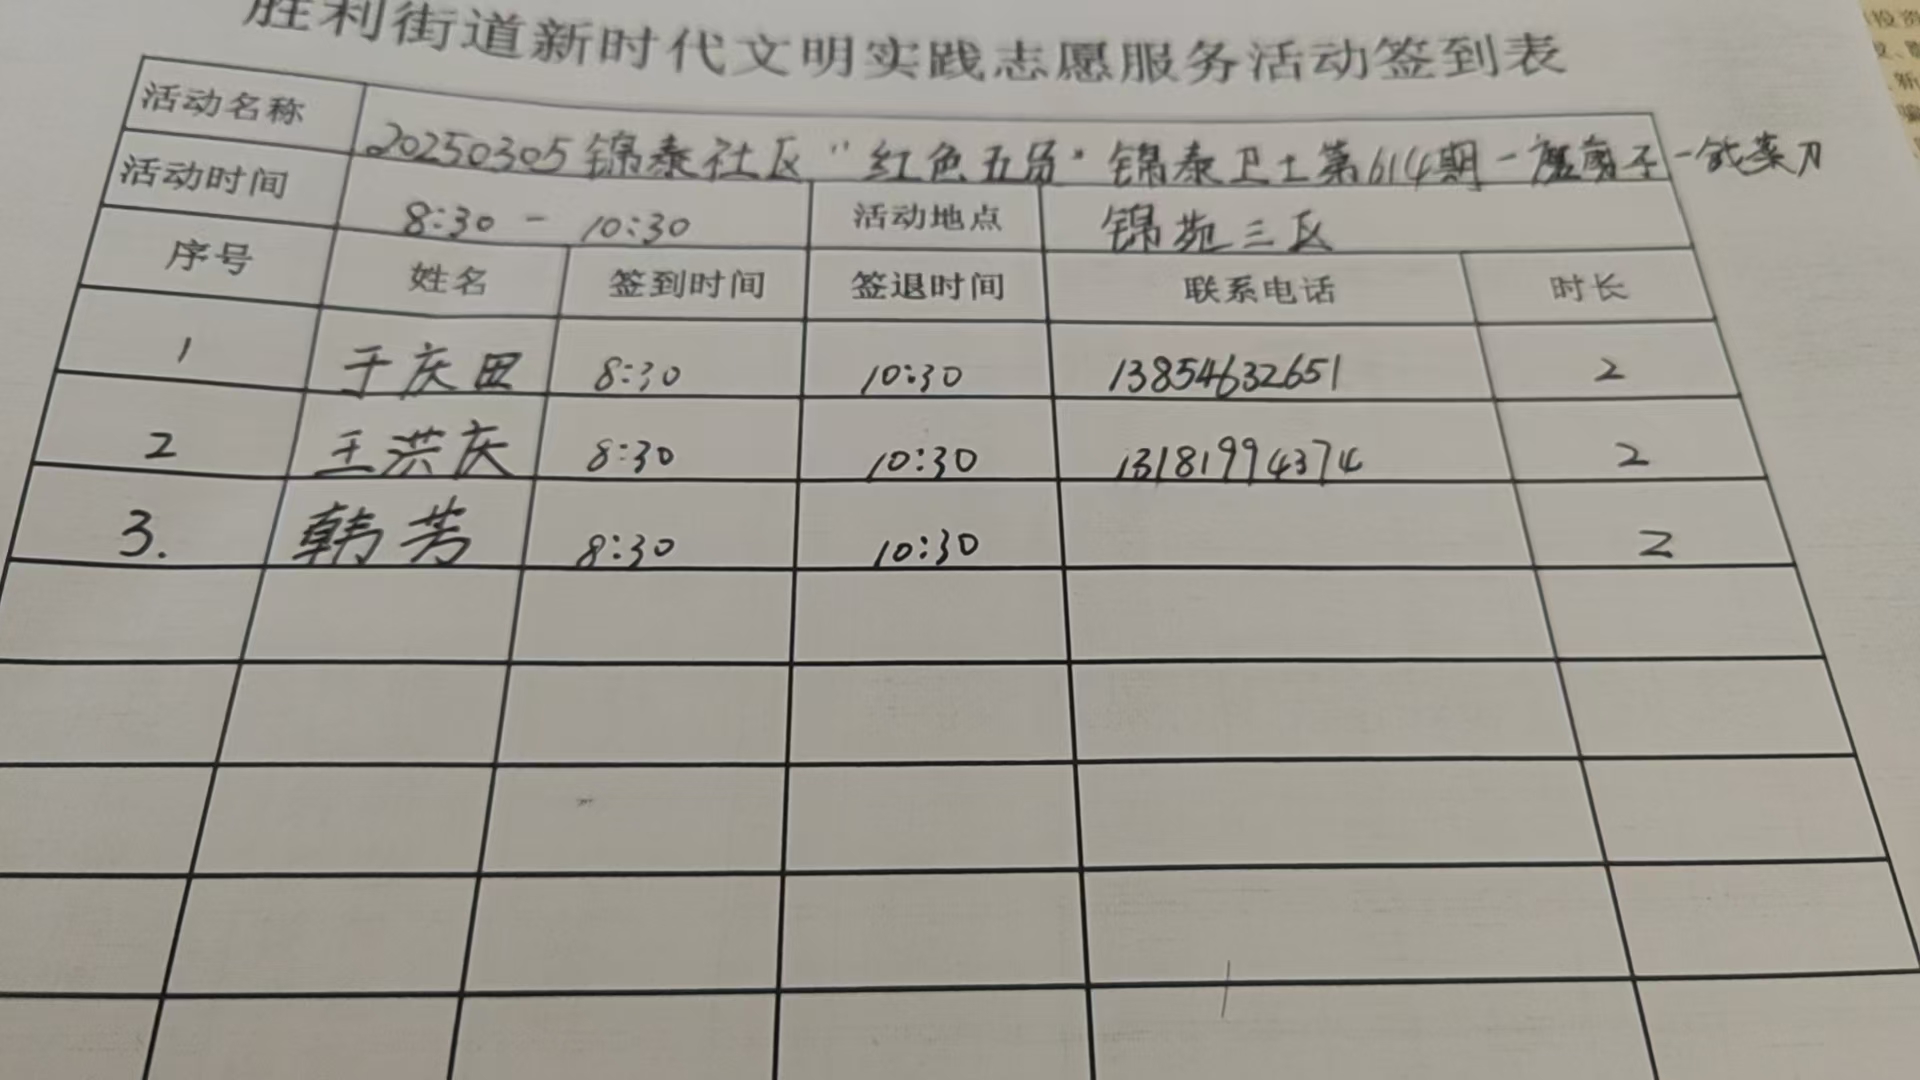 胜利街道新时代文明实践志愿服务活动签到表
活动名称 20250305锦泰社区"红色五员"锦泰卫士第614期-磨剪子-戗菜刀
活动时间 8:30 - 10:30 活动地点 锦苑三区
序号 姓名 签到时间 签退时间 联系电话 时长
1 于庆田 8:30 10:30 13854632651 2
2 王洪庆 8:30 10:30 13181994374 2
3. 韩芳 8:30 10:30 2